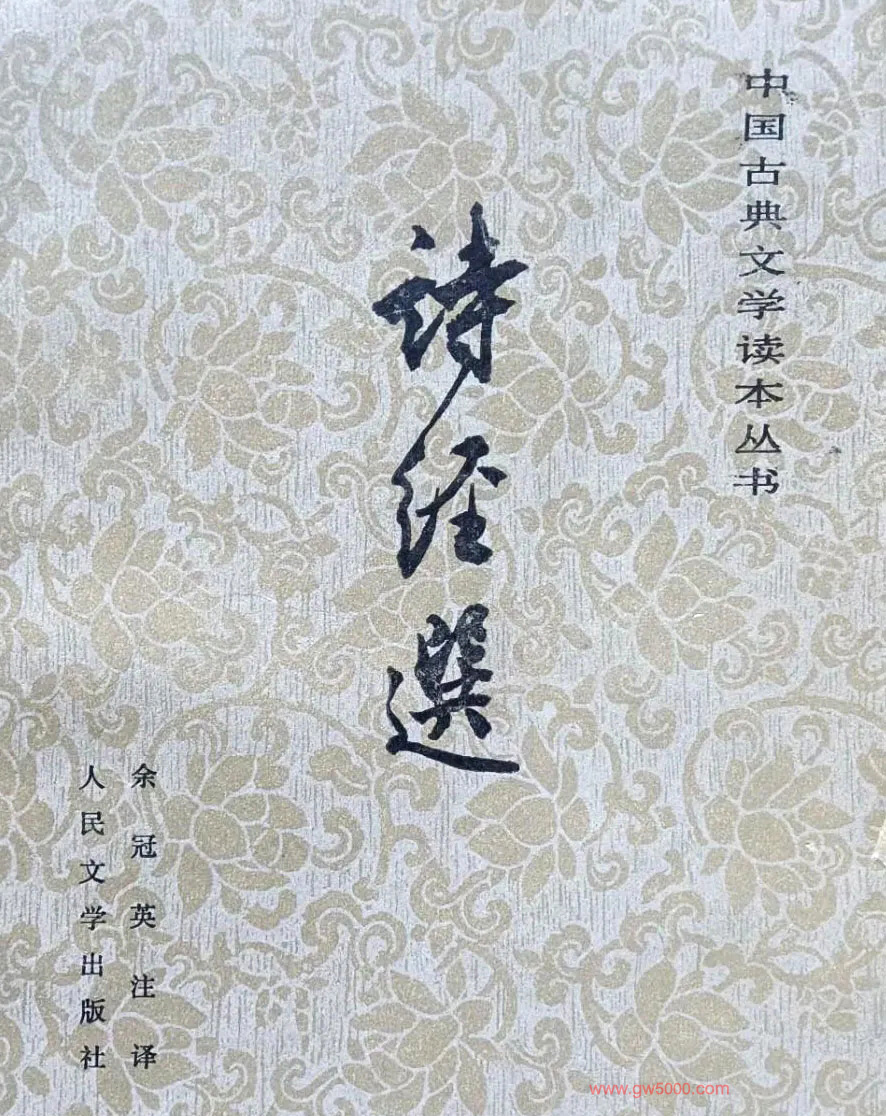 中国古典文学读本丛书
詩经選
余冠英注译
人民文学出版社
www.gw5000.com